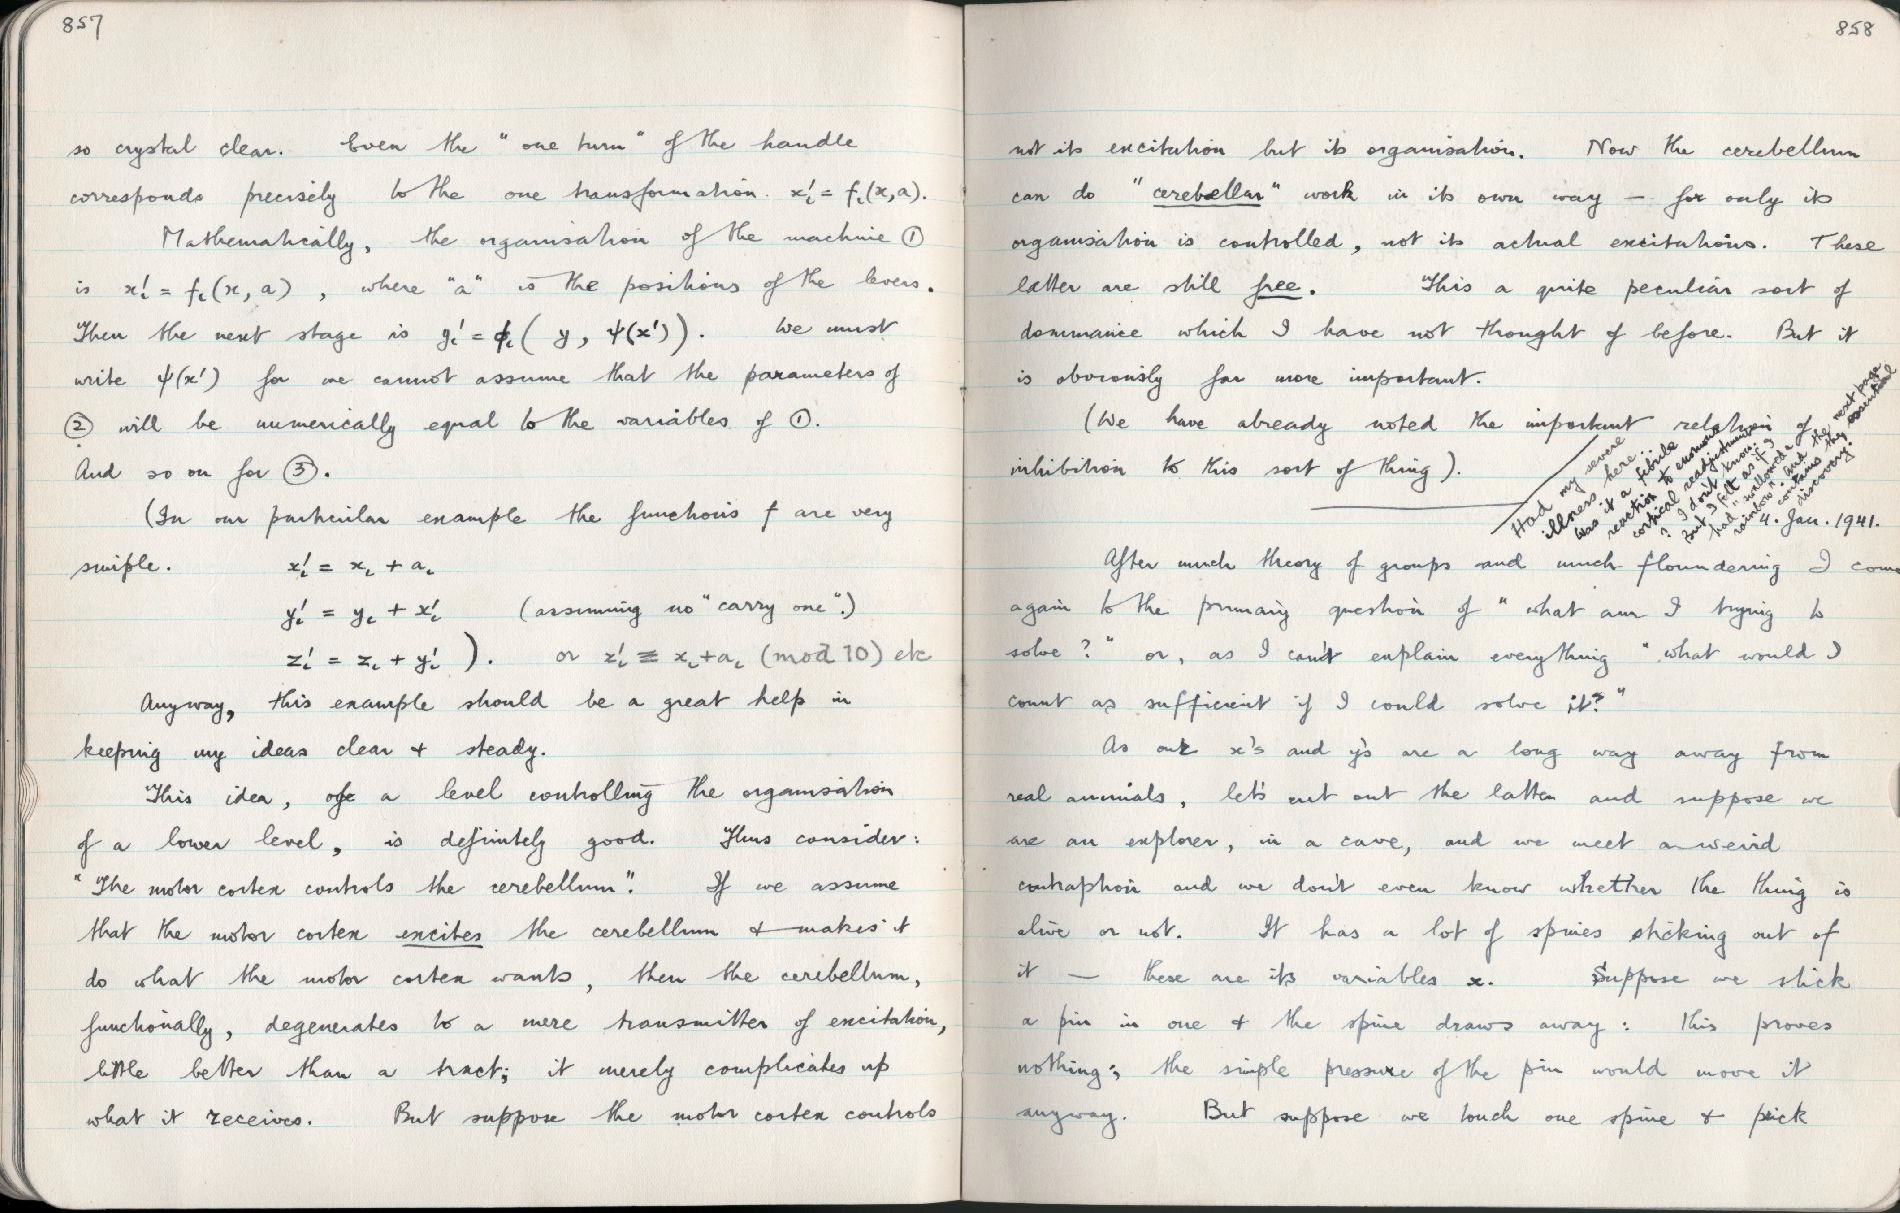 857
so crystal clear. Even the "one turn" of the handle
corresponds precisely to the one transformation. x'ᵢ = fᵢ(x,a).
Mathematically, the organisation of the machine ①
is x'ᵢ = fᵢ(x, a) , where "a" is the positions of the levers.
Then the next stage is y'ᵢ = ϕᵢ( y, ψ(x')). We must
write ψ(x') for we cannot assume that the parameters of
② will be numerically equal to the variables of ①.
And so on for ③.
(In our particular example the functions f are very
simple. x'ᵢ = xᵢ + aᵢ
y'ᵢ = yᵢ + x'ᵢ (assuming no "carry one".)
z'ᵢ = zᵢ + y'ᵢ ). or x'ᵢ ≡ xᵢ+aᵢ (mod 10) etc
Anyway, this example should be a great help in
keeping my ideas clear + steady.
This idea, of a level controlling the organisation
of a lower level, is definitely good. Thus consider:
"The motor cortex controls the cerebellum". If we assume
that the motor cortex excites the cerebellum + makes it
do what the motor cortex wants, then the cerebellum,
functionally, degenerates to a mere transmitter of excitation,
little better than a tract; it merely complicates up
what it receives. But suppose the motor cortex controls
858
not its excitation but its organisation. Now the cerebellum
can do "cerebellar" work in its own way – for only its
organisation is controlled, not its actual excitations. These
latter are still free. This a quite peculiar sort of
dominance which I have not thought of before. But it
is obviously far more important.
(We have already noted the important relation of
inhibition to this sort of thing).
Had my severe
illness here.
Was it a febrile
reaction to enormous
cortical readjustment
? I don't know.
But I felt as if I
had "swallowed a
rainbow". And the next page
contains the essential
discovery.
4. Jan. 1941.
After much theory of groups and much floundering I come
again to the primary question of "what am I trying to
solve?" or, as I can't explain everything "what would I
count as sufficient if I could solve it?"
As our x's and y's are a long way away from
real animals, let's cut out the latter and suppose we
are an explorer, in a cave, and we meet a weird
contraption and we don't even know whether the thing is
alive or not. It has a lot of spines sticking out of
it – these are its variables x. Suppose we stick
a pin in one + the spine draws away: this proves
nothing; the simple pressure of the pin would move it
anyway. But suppose we touch one spine + prick